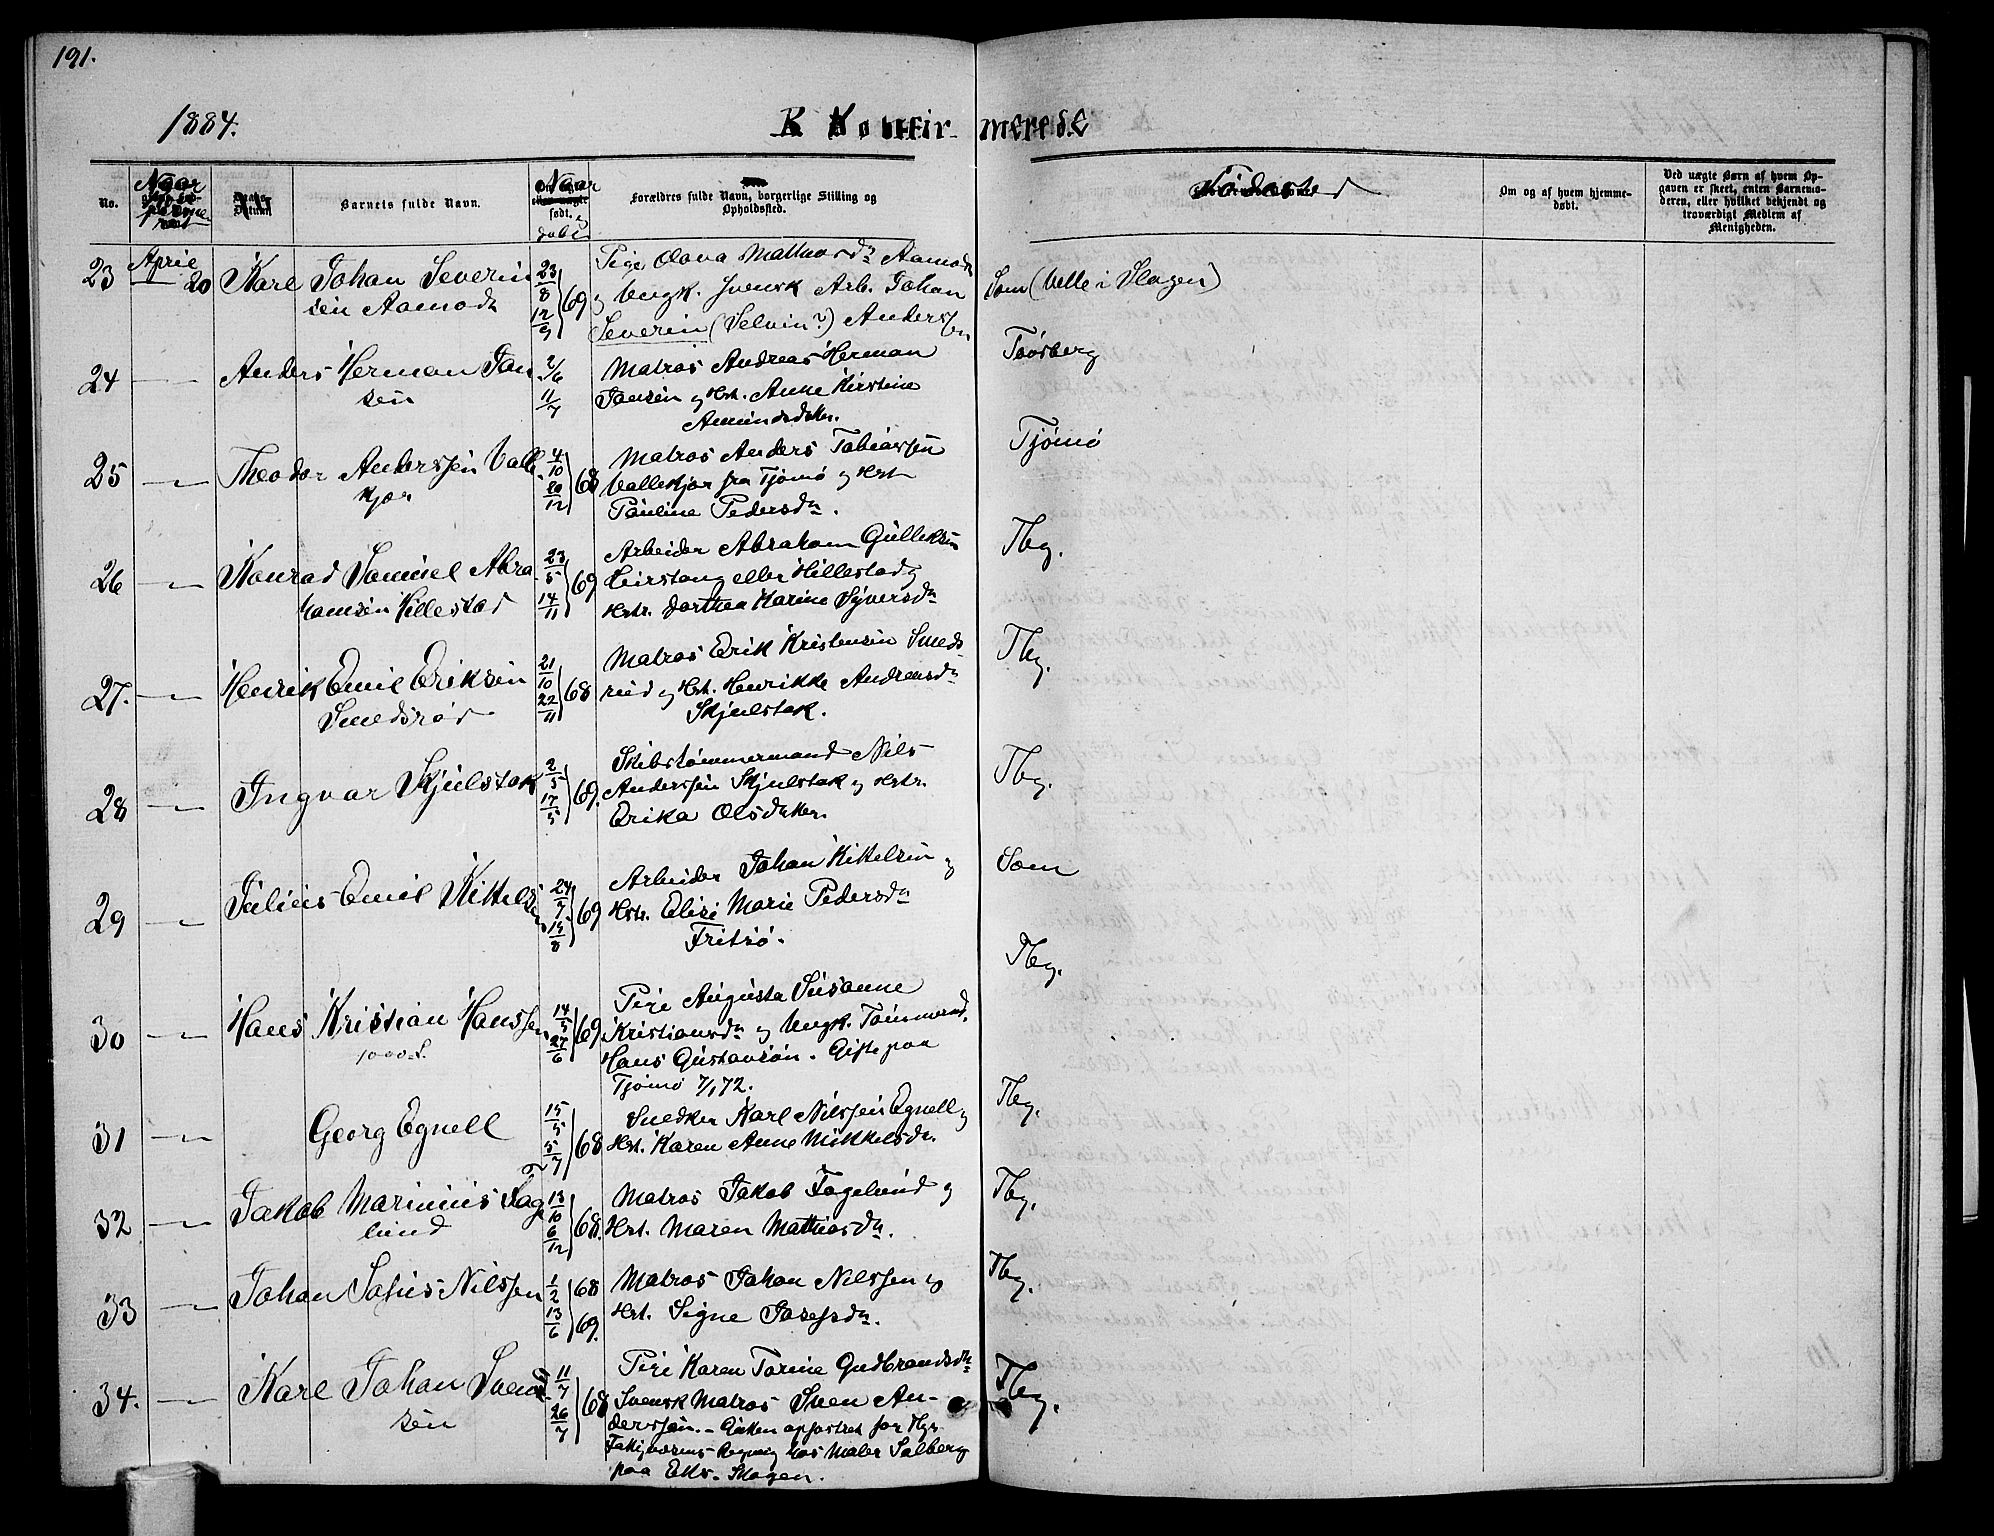 191.
1884.
B Konfirmerede
No.
Naar
Barnets fulde Navn.
Naar
født.
døbt
Forældres fulde Navn, borgerlige Stilling og
Opholdssted.
Fødested
Om og af hvem hjemme-
døbt.
Ved uægte Børn af hvem Op-
gaven er skeet, enten Barnemo-
deren, eller hvilket bekjendt og
troværdigt Medlem af
Menigheden.
23 April 20 Karl Johan Severin
sen Aamodt
23/8 12/9 69
Pige Olava Mathiasdr Aamodt
og Ungk. svensk Arb. Johan
Severin (Selvin?) Anderssen
Sem (Velle i Slagen)
24 — Anders Herman Jan
sen
2/6 11/7
Matros Andreas Herman
Jansen og Hst. Anne Kirstine
Amundsdatter.
Tønsberg
25 — Theodor Anderssen Valle
kjær
4/10 20/12 68
Matros Anders Tobiassen
Vallekjær fra Tjømø og Hst
Pauline Pedersdr.
Tjømø
26 — Konrad Samuel Abra
hamsen Hillestad
23/5 14/11 69
Arbeider Abraham Gulleksen
eller Hillestad og
Hstr. Dorthea Karine Syversdr
Tbg.
27. — Henrik Emil Eriksen
Smedsrød
21/10 22/11 68
Matros Erik Kristensen Smeds-
rød og Hst. Henrikke Andreasdr
Skjulstak.
Tbg.
28 — Ingvar Skjulstak
2/5 17/5 69.
Skibstømmermand Nils
Anderssen Skjulstak og Hstr.
Erika Olsdatter.
Tbg.
29 — Julius Emil Kittelsen
24/7 15/8 69
Arbeider Johan Kittelsen og
Hstr. Elise Marie Pedersdr
Fritsø.
Sem
30 — Hans Kristian Hanssen
14/5 27/6 69
Pige Augusta Susanne
Kristiansdr og Ungk. Tømmermd.
Hans Gustavsøn. Gifte paa
Tjømø 7/1 72.
Tbg.
31 — Georg Egnell
15/5 5/7 68
Snedker Karl Nilssen Egnell og
Hst. Karen Anne Mikkelsdr.
Tbg.
32 — Jakob Marinius Fag
lund
13/10 6/12 68.
Matros Jakob Fagelund og
Hst. Maren Mathiasdr.
Tbg.
33 — Johan Josius Nilssen
1/2 68
13/6 69.
Matros Johan Nilssen og
Hst. Signe Josefsdr.
Tbg.
34. — Karl Johan Svend
sen
11/7 26/7 68
Pige Karen Torine Gudbrandsdr
Svensk Matros Sven An-
derssøn. — Gutten opfostret for Tbgs
Fattigvæsens Regning hos Maler Solberg
paa Eks. Skogen.
Tbg.